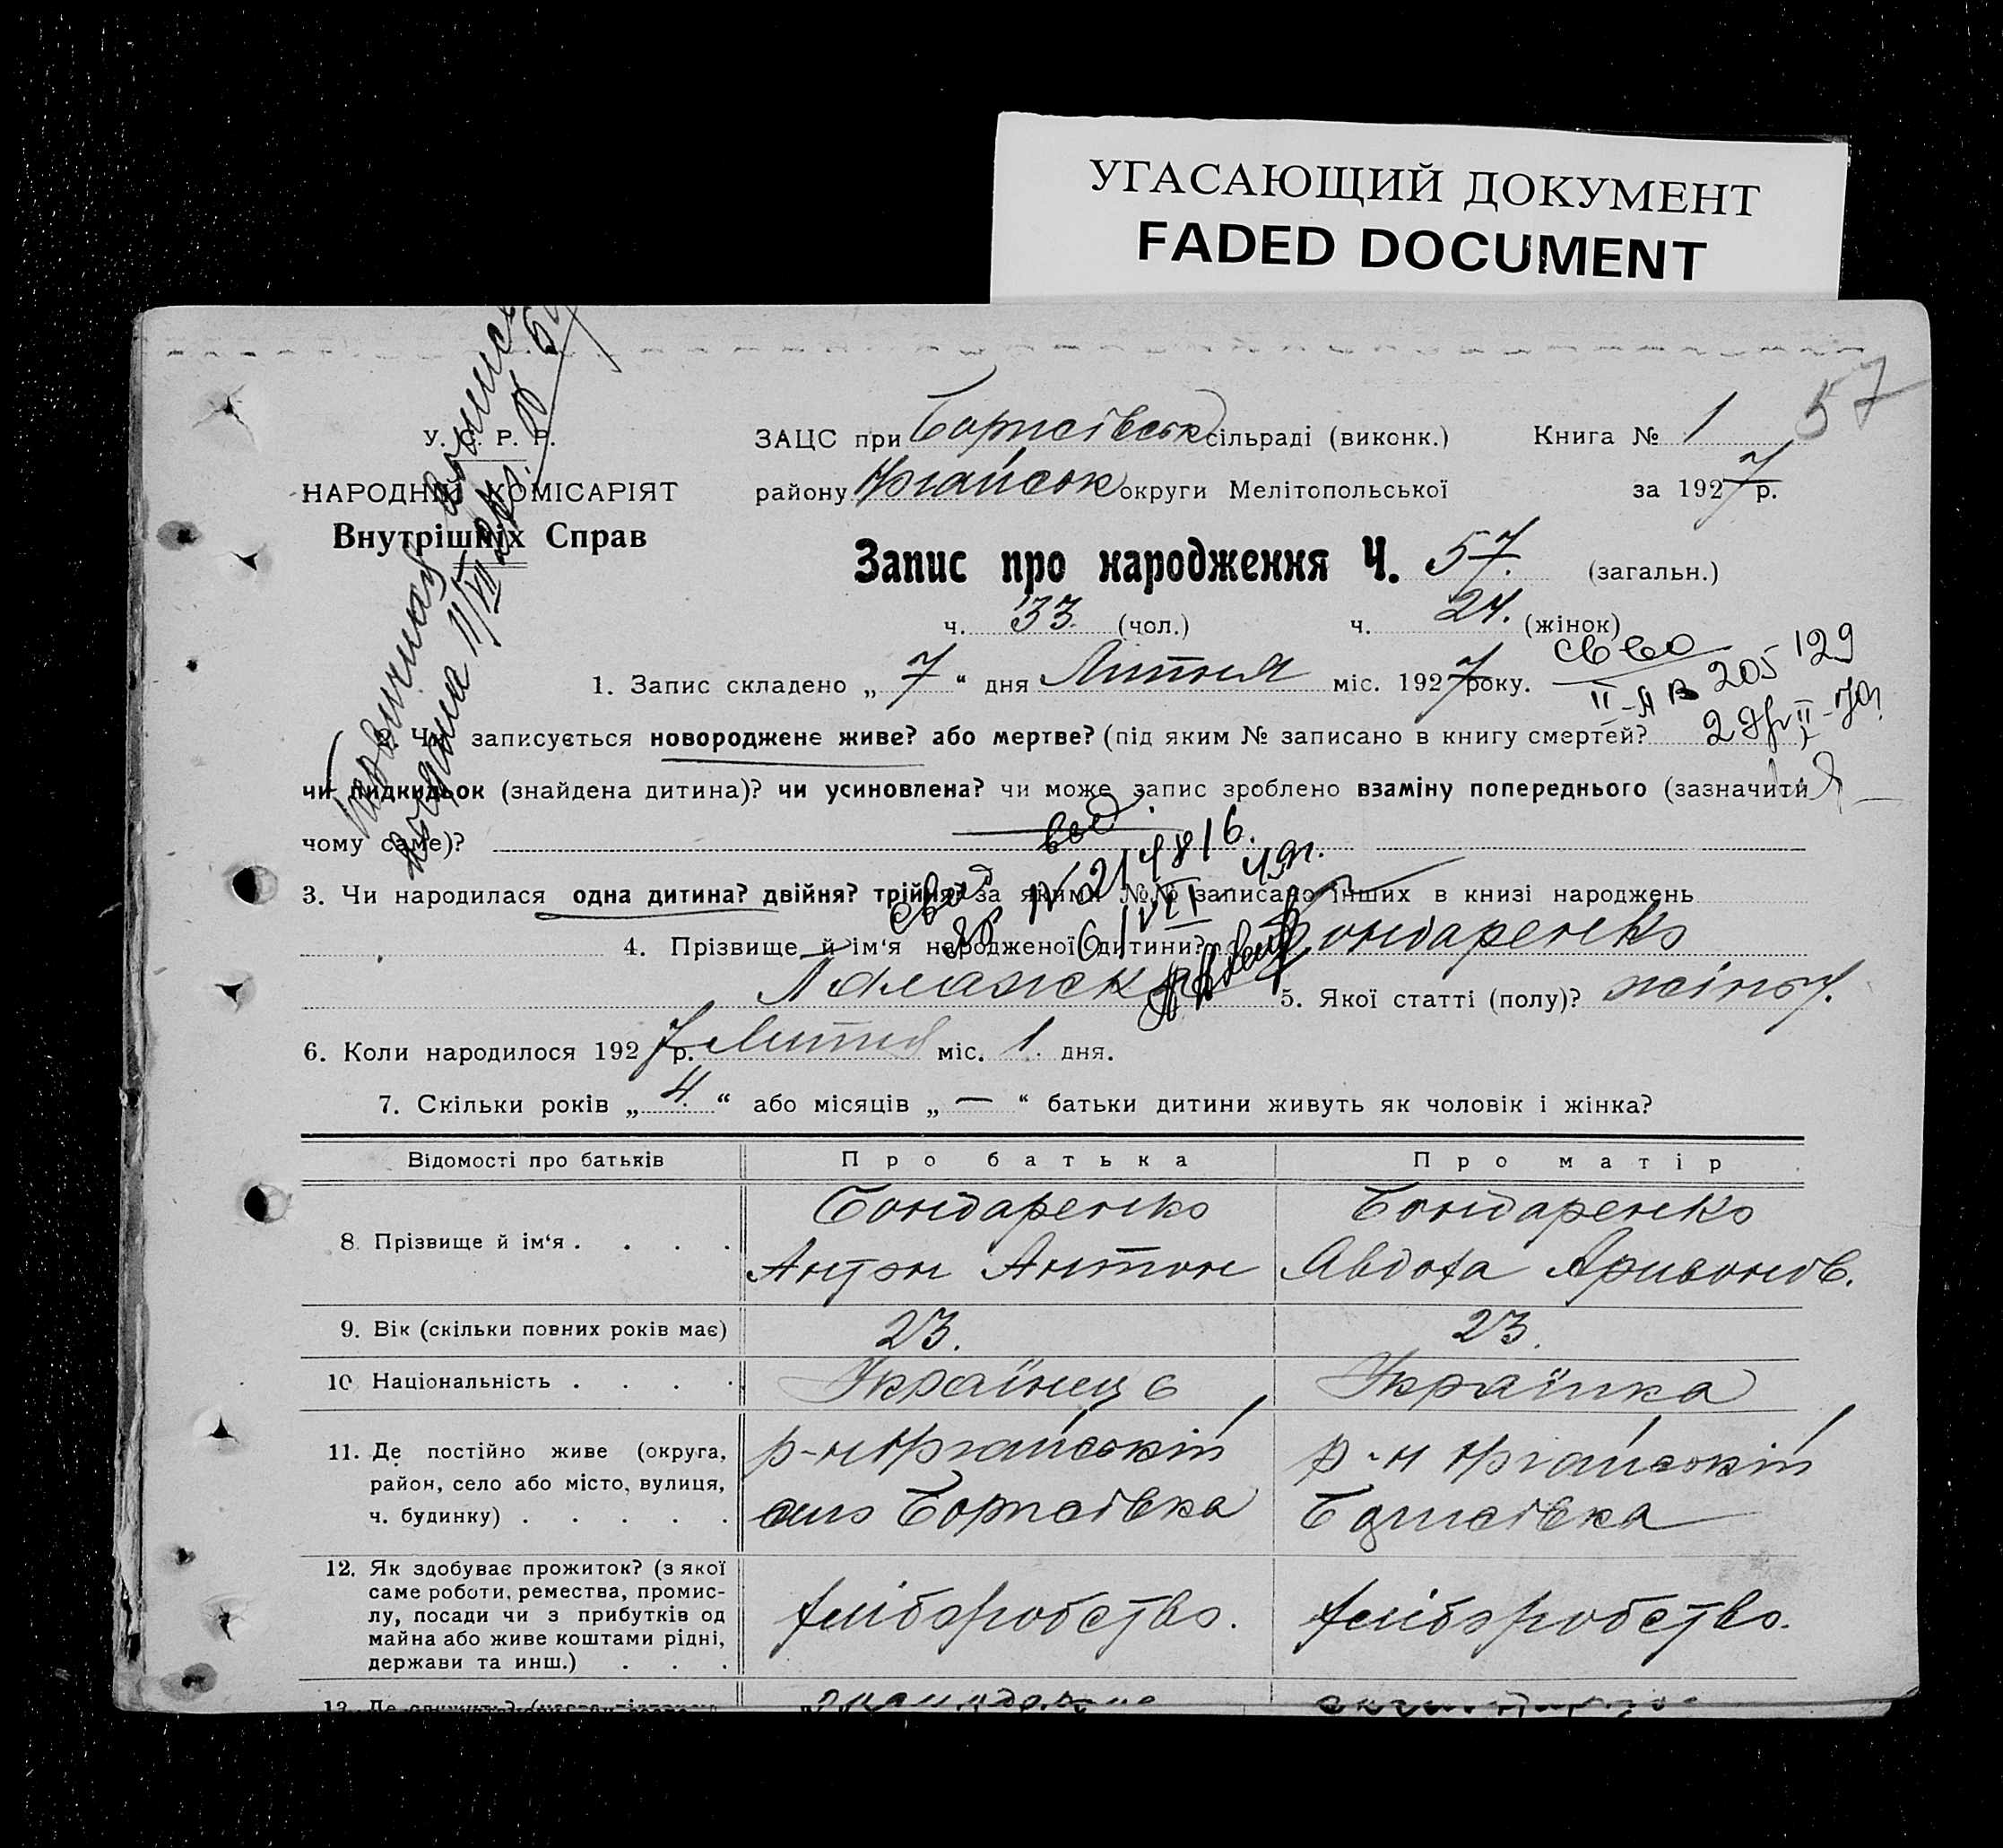 УГАСАЮЩИЙ ДОКУМЕНТ
FADED DOCUMENT
57
У. С. Р. Р.
НАРОДНИЙ КОМІСАРІЯТ
Внутрішніх Справ
ЗАЦС при Борисівськ сільраді (виконк.) Книга № 1
району округи Мелітопольської за 1927 р.
Запис про народження Ч. 57. (загальн.)
ч. 33. (чол.) ч. 24. (жінок)
1. Запис складено „ 7 “ дня Липня міс. 1927 року.
205 129
Чи записується новороджене живе? або мертве? (під яким № записано в книгу смертей?
чи підкидьок (знайдена дитина)? чи усиновлена? чи може запис зроблено взаміну попереднього (зазначити
чому саме)?
3. Чи народилася одна дитина? двійня? трійня? за якими №№ записано інших в книзі народжень
4. Прізвище й ім'я народженої дитини? Бондаренко
5. Якої статті (полу)? жіноч.
6. Коли народилося 1927 р. Липня міс. 1. дня.
7. Скільки років „ 4. “ або місяців „ — “ батьки дитини живуть як чоловік і жінка?
Відомості про батьків Про батька Про матір
8. Прізвище й ім'я . . . . Бондаренко Бондаренко
Антон Антон Авдотя
9. Вік (скільки повних років має) 23. 23.
10 Національність . . . . Українець Українка
11. Де постійно живе (округа, р-н р-н
район, село або місто, вулиця,
ч. будинку) . . . . . село Борисівка Борисівка
12. Як здобуває прожиток? (з якої
саме роботи, ремества, промис-
лу, посади чи з прибутків од
майна або живе коштами рідні,
держави та инш.) . . . хліборобство. хліборобство.